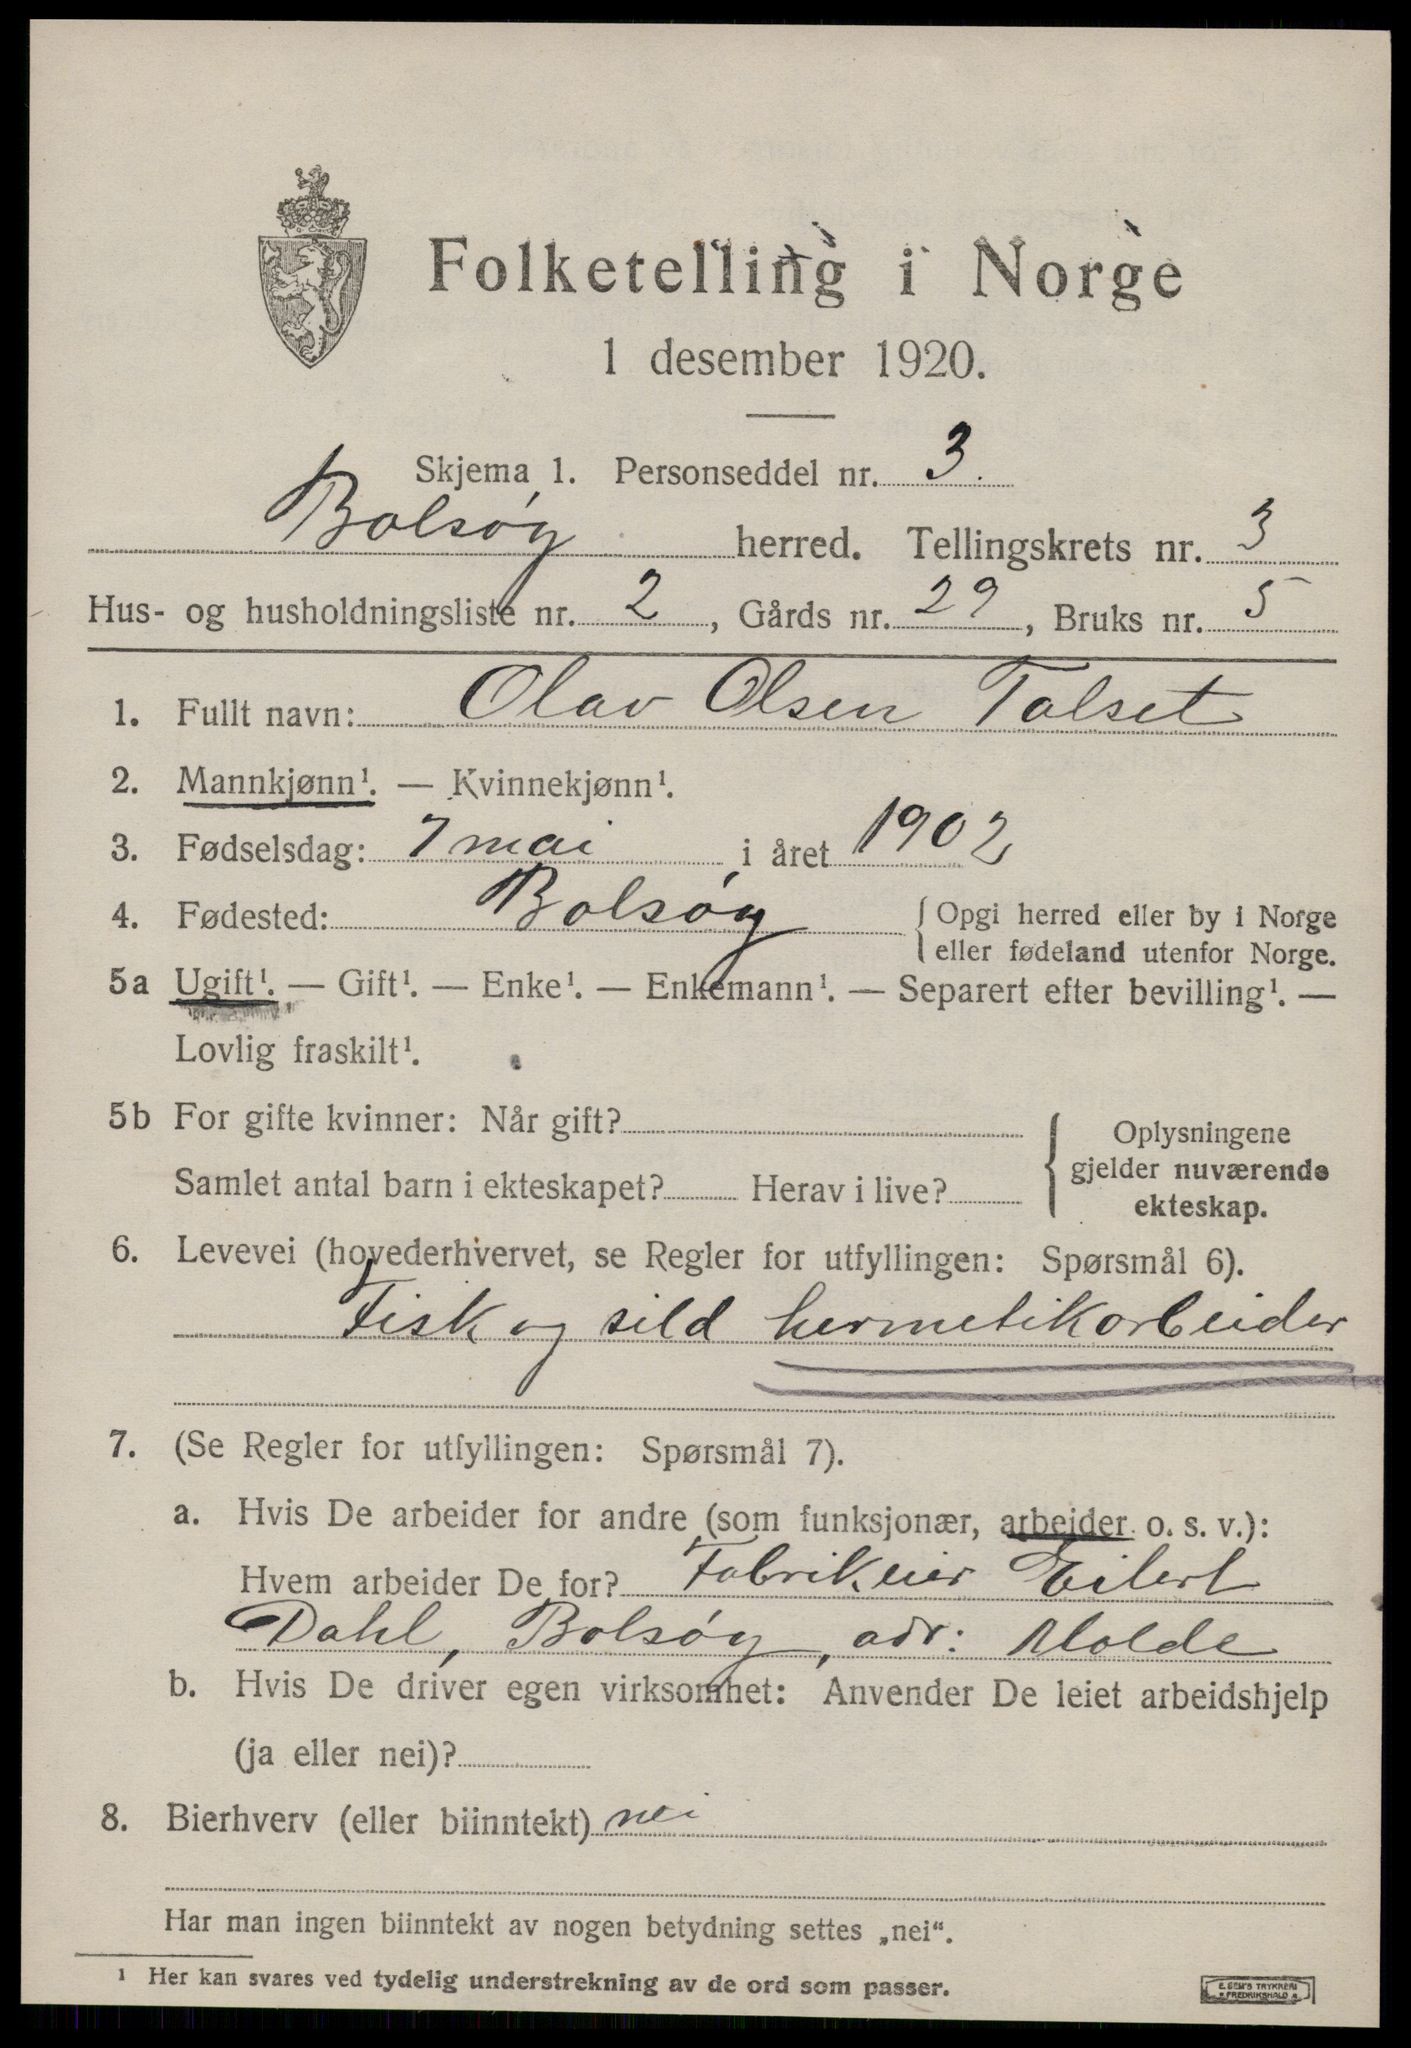 Folketelling i Norge
1 desember 1920.
Skjema 1. Personseddel nr. 3.
Bolsøy herred. Tellingskrets nr. 3
Hus- og husholdningsliste nr. 2, Gårds nr. 29, Bruks nr. 5
1. Fullt navn: Olav Olsen Talset
2. Mannkjønn¹. — Kvinnekjønn¹.
3. Fødselsdag: 7 mai i året 1902
4. Fødested: Bolsøy { Opgi herred eller by i Norge
eller fødeland utenfor Norge.
5a Ugift¹. — Gift¹. — Enke¹. — Enkemann¹. — Separert efter bevilling¹. —
Lovlig fraskilt¹.
5b For gifte kvinner: Når gift? { Oplysningene
gjelder nuværende
ekteskap.
Samlet antal barn i ekteskapet? Herav i live?
6. Levevei (hovederhvervet, se Regler for utfyllingen: Spørsmål 6).
Fisk og sild hermetikarbeider
7. (Se Regler for utfyllingen: Spørsmål 7).
a. Hvis De arbeider for andre (som funksjonær, arbeider o. s. v.):
Hvem arbeider De for? Fabrikeier Eilert
Dahl, Bolsøy, adr: Molde
b. Hvis De driver egen virksomhet: Anvender De leiet arbeidshjelp
(ja eller nei)?
8. Bierhverv (eller biinntekt) nei
Har man ingen biinntekt av nogen betydning settes „nei“.
¹ Her kan svares ved tydelig understrekning av de ord som passer.
E. SEM'S TRYKKERI
FREDRIKSHALD